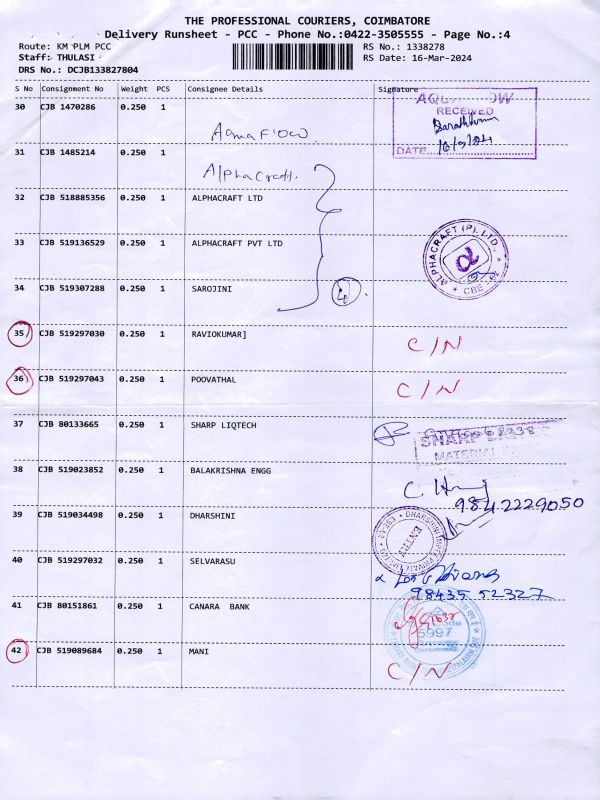 THE PROFESSIONAL COURIERS, COIMBATORE
Delivery Runsheet - PCC - Phone No.:0422-3505555 - Page No.:4
Route: KM PLM PCC
RS No.: 1338278
Staff: THULASI
RS Date: 16-Mar-2024
DRS No.: DCJB133827804
S No Consignment No Weight PCS Consignee Details Signature
30 CJB 1470286 0.250 1
RECEIVED
DATE
31 CJB 1485214 0.250 1
32 CJB 518885356 0.250 1 ALPHACRAFT LTD
33 CJB 519136529 0.250 1 ALPHACRAFT PVT LTD
ALPHACRAFT (P) LTD.,
CBE
34 CJB 519307288 0.250 1 SAROJINI
4
35 CJB 519297030 0.250 1 RAVIOKUMAR] C/N
36 CJB 519297043 0.250 1 POOVATHAL C/N
37 CJB 80133665 0.250 1 SHARP LIQTECH
SHARP
MATERIAL
38 CJB 519023852 0.250 1 BALAKRISHNA ENGG
9842229050
39 CJB 519034498 0.250 1 DHARSHINI
DHARSHINI
ENTRY
40 CJB 519297032 0.250 1 SELVARASU
98435 52327
41 CJB 80151861 0.250 1 CANARA BANK
5997
42 CJB 519089684 0.250 1 MANI C/N